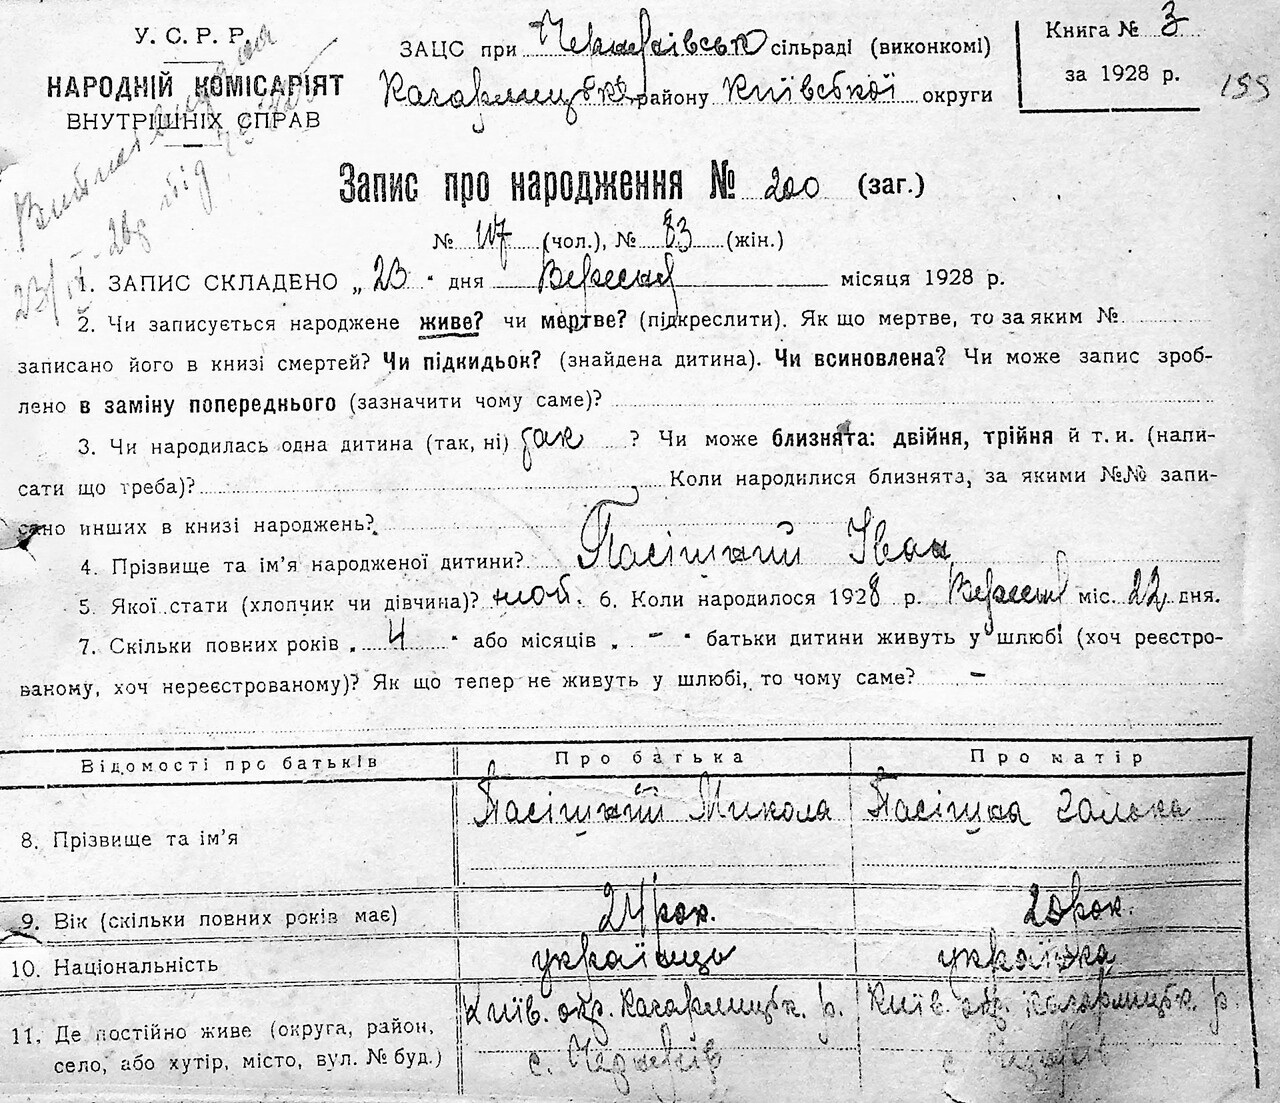 У. С. Р. Р.
НАРОДНІЙ КОМІСАРІЯТ
ВНУТРІШНІХ СПРАВ
ЗАЦС при сільраді (виконкомі)
Кагарлицьк. району Київської округи
Книга № 3
за 1928 р.
155
Запис про народження № 200 (заг.)
№ 117 (чол.), № 83 (жін.)
1. ЗАПИС СКЛАДЕНО „ 23 " дня Вересня місяця 1928 р.
2. Чи записується народжене живе? чи мертве? (підкреслити). Як що мертве, то за яким №
записано його в книзі смертей? Чи підкидьок? (знайдена дитина). Чи всиновлена? Чи може запис зроб-
лено в заміну попереднього (зазначити чому саме)?
3. Чи народилась одна дитина (так, ні) так ? Чи може близнята: двійня, трійня й т. и. (напи-
сати що треба)? Коли народилися близнята, за якими №№ запи-
сано инших в книзі народжень?
4. Прізвище та ім'я народженої дитини? Пасішний Іван
5. Якої стати (хлопчик чи дівчина)? 6. Коли народилось 1928 р. Вересня міс. 22 дня.
7. Скільки повних років „ 4 " або місяців „ - " батьки дитини живуть у шлюбі (хоч реєстро-
ваному, хоч нереєстрованому)? Як що тепер не живуть у шлюбі, то чому саме? -
Відомості про батьків Про батька Про матір
8. Прізвище та ім'я Пасішний Микола Пасішна Галька
9. Вік (скільки повних років має) 24 рок. 20 рок.
10. Національність українець українка
11. Де постійно живе (округа, район,
село, або хутір, місто, вул. № буд.)
Київ. окр. Кагарлицьк. р. Київ. окр. Кагарлицьк. р.
с. с.